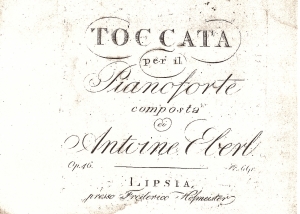 TOCCATA
per il
Pianoforte
composta
da
Antoine Eberl
Op. 46.
LIPSIA,
presso Frederico Hofmeister